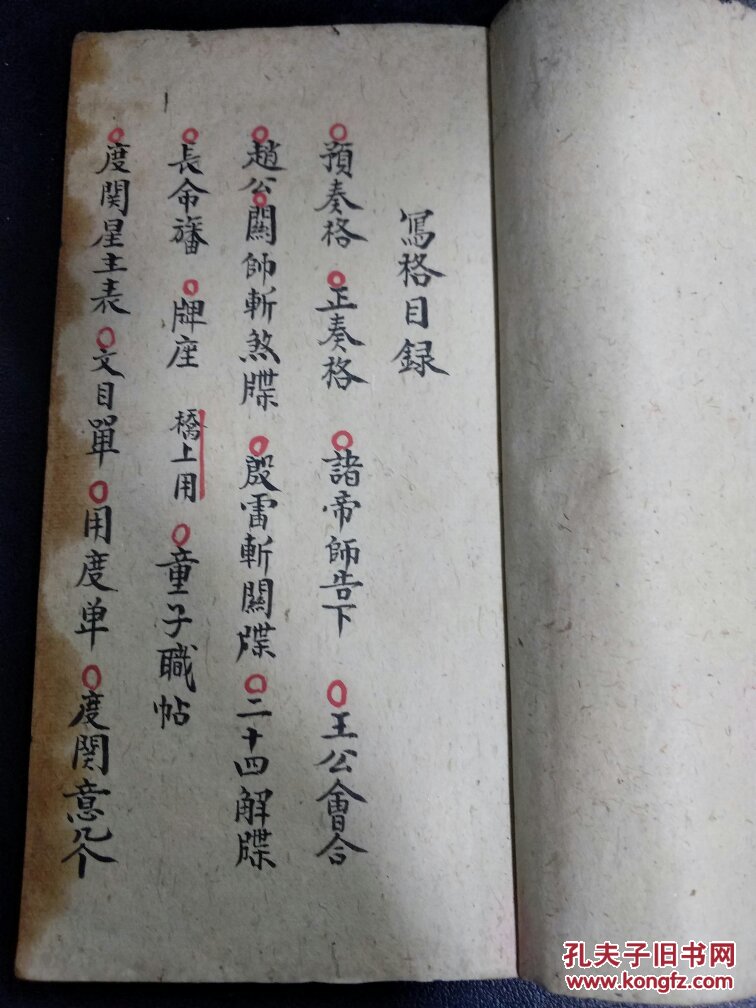 寫格目録
預奏格 正奏格 諸帝師告下 王公會合
趙公關帥斬煞牒 殷雷斬關牒 二十四解牒
長命旛 牌座 橋上用 童子職帖
度関星主表 文目單 用度单 度関意几个
孔夫子旧书网
www.kongfz.com